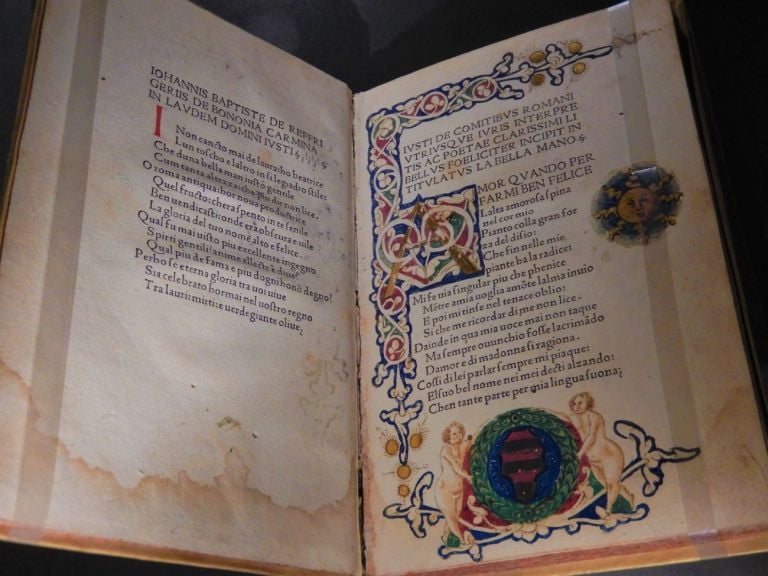 IOHANNIS BAPTISTE DE REFFRI
GERIIS DE BONONIA CARMINA
IN LAVDEM DOMINI IVSTI
I
Non cancto mai de laura: ho beatrice
Lun toscho e laltro in si legiadro stile
Che duna bella man iusto gentile
Cum tanta alteza: che piu du non lice.
O roma antiqua: hor noua productrice
Quel fructo: chera spento in te senile
Ben uendicasti: onde era obscura e uile
La gloria del tuo nome alto e felice.
Qual fu mai uisto piu excellente ingegno
Spirti gentili: anime ellecte e diue?
Qual piu de fama e piu dogni honõ degno?
Perho se eterna gloria tra uoi uiue
Sia celebrato hormai nel uostro regno
Tra lauri: mirti: e uerdegiante oliue;
IVSTI DE COMITIBVS ROMANI
VTRIVSQVE IVRIS INTERPRE
TIS AC POETAE CLARISSIMI LI
BELLVS FOELICITER INCIPIT IN
TITVLATVS LA BELLA MANO
MOR QVANDO PER
FARMI BEN FELICE
Lalta amorosa spina
nel cor mio
Pianto colla gran for
za del disio:
Che fin nelle mie
piante ba la radice:
Mi fe uia singular piu che phenice
Mẽtre amia uoglia amõte lalma inuio
E poi mi tinse nel tenace oblio:
Si che me ricordar di me non lice.
Dainde in qua mia uoce mai non taque
Ma sempre ouunchio fosse lacrimãdo
Damor e di madonna si ragiona.
Cossi di lei parlar sempre mi piaque:
El suo bel nome nei mei decti alzando:
Chen tante parte per mia lingua suona;